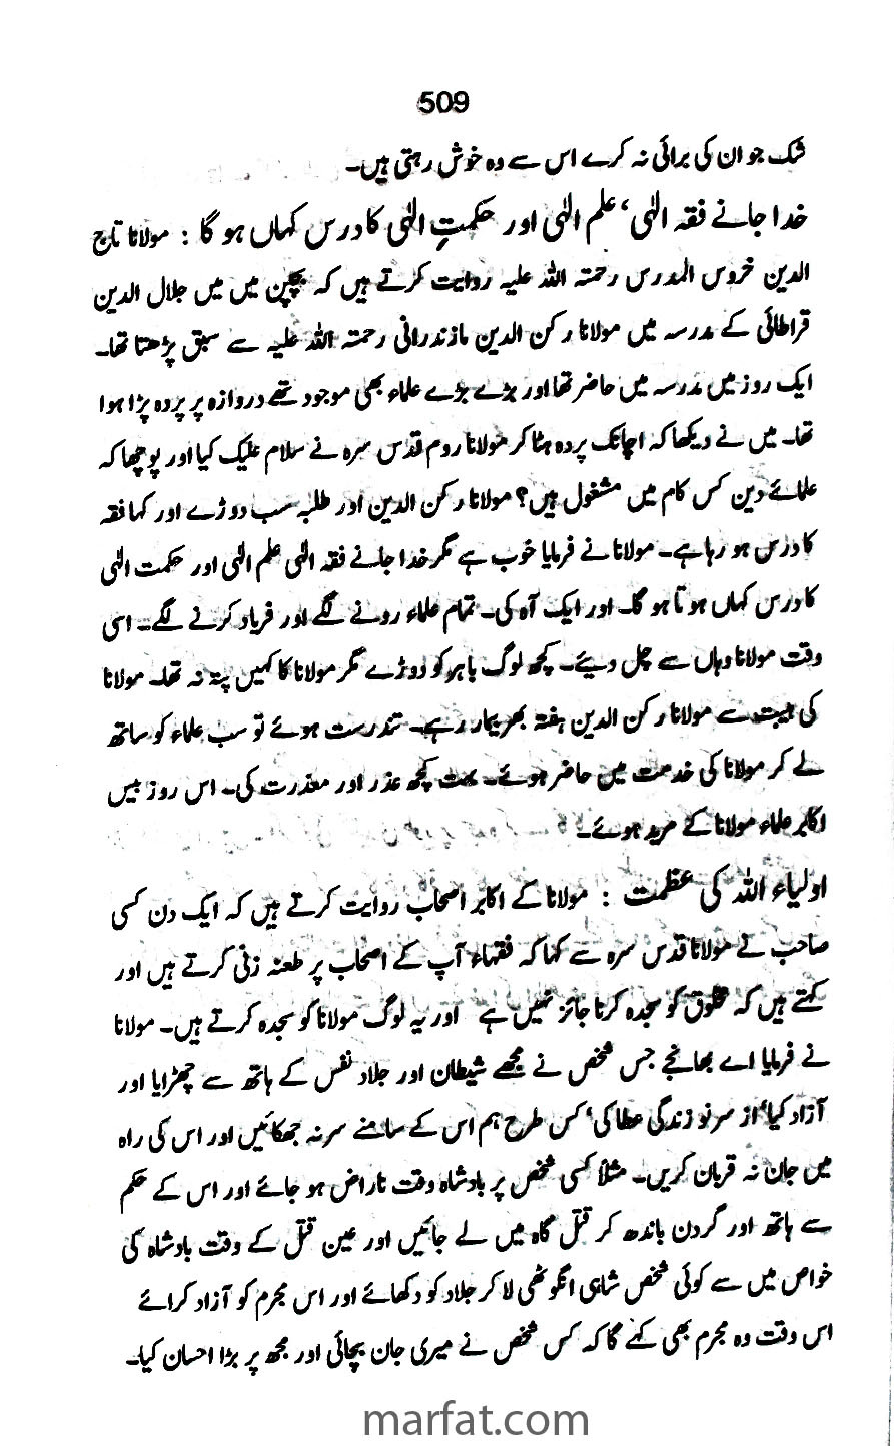 509
شک جو ان کی برائی نہ کرے اس سے وہ خوش رہتی ہیں۔
خدا جانے فقہ الٰہی، علم الٰہی اور حکمتِ الٰہی کا درس کہاں ہو گا : مولانا تاج
الدین خروس المدرس رحمتہ اللہ علیہ روایت کرتے ہیں کہ بچپن میں میں جلال الدین
قراطائی کے مدرسہ میں مولانا رکن الدین مازندرانی رحمتہ اللہ علیہ سے سبق پڑھتا تھا۔
ایک روز میں مدرسہ میں حاضر تھا اور بڑے بڑے علماء بھی موجود تھے دروازہ پر پردہ پڑا ہوا
تھا۔ میں نے دیکھا کہ اچانک پردہ ہٹا کر مولانا روم قدس سرہ نے سلام علیک کیا اور پوچھا کہ
علمائے دین کس کام میں مشغول ہیں؟ مولانا رکن الدین اور طلبہ سب دوڑے اور کہا فقہ
کا درس ہو رہا ہے۔ مولانا نے فرمایا خوب ہے مگر خدا جانے فقہ الٰہی علم الٰہی اور حکمت الٰہی
کا درس کہاں ہوتا ہو گا۔ اور ایک آہ کی۔ تمام علماء رونے لگے اور فریاد کرنے لگے۔ اسی
وقت مولانا وہاں سے چل دیئے۔ کچھ لوگ باہر کو دوڑے مگر مولانا کا کہیں پتہ نہ تھا۔ مولانا
کی ہیبت سے مولانا رکن الدین ہفتہ بھر بیمار رہے۔ تندرست ہوئے تو سب علماء کو ساتھ
لے کر مولانا کی خدمت میں حاضر ہوئے۔ بہت کچھ عذر اور معذرت کی۔ اس روز بیس
اکابر علماء مولانا کے مرید ہوئے۔
اولیاء اللہ کی عظمت : مولانا کے اکابر اصحاب روایت کرتے ہیں کہ ایک دن کسی
صاحب نے مولانا قدس سرہ سے کہا کہ فقہاء آپ کے اصحاب پر طعنہ زنی کرتے ہیں اور
کہتے ہیں کہ مخلوق کو سجدہ کرنا جائز نہیں ہے اور یہ لوگ مولانا کو سجدہ کرتے ہیں۔ مولانا
نے فرمایا اے بھانجے جس شخص نے مجھے شیطان اور جلاد نفس کے ہاتھ سے چھڑایا اور
آزاد کیا، از سر نو زندگی عطا کی، کس طرح ہم اس کے سامنے سر نہ جھکائیں اور اس کی راہ
میں جان نہ قربان کریں۔ مثلاً کسی شخص پر بادشاہ وقت ناراض ہو جائے اور اس کے حکم
سے ہاتھ اور گردن باندھ کر قتل گاہ میں لے جائیں اور عین قتل کے وقت بادشاہ کی
خواص میں سے کوئی شخص شاہی انگوٹھی لا کر جلاد کو دکھائے اور اس مجرم کو آزاد کرائے
اس وقت وہ مجرم بھی کہے گا کہ کس شخص نے میری جان بچائی اور مجھ پر بڑا احسان کیا۔
marfat.com